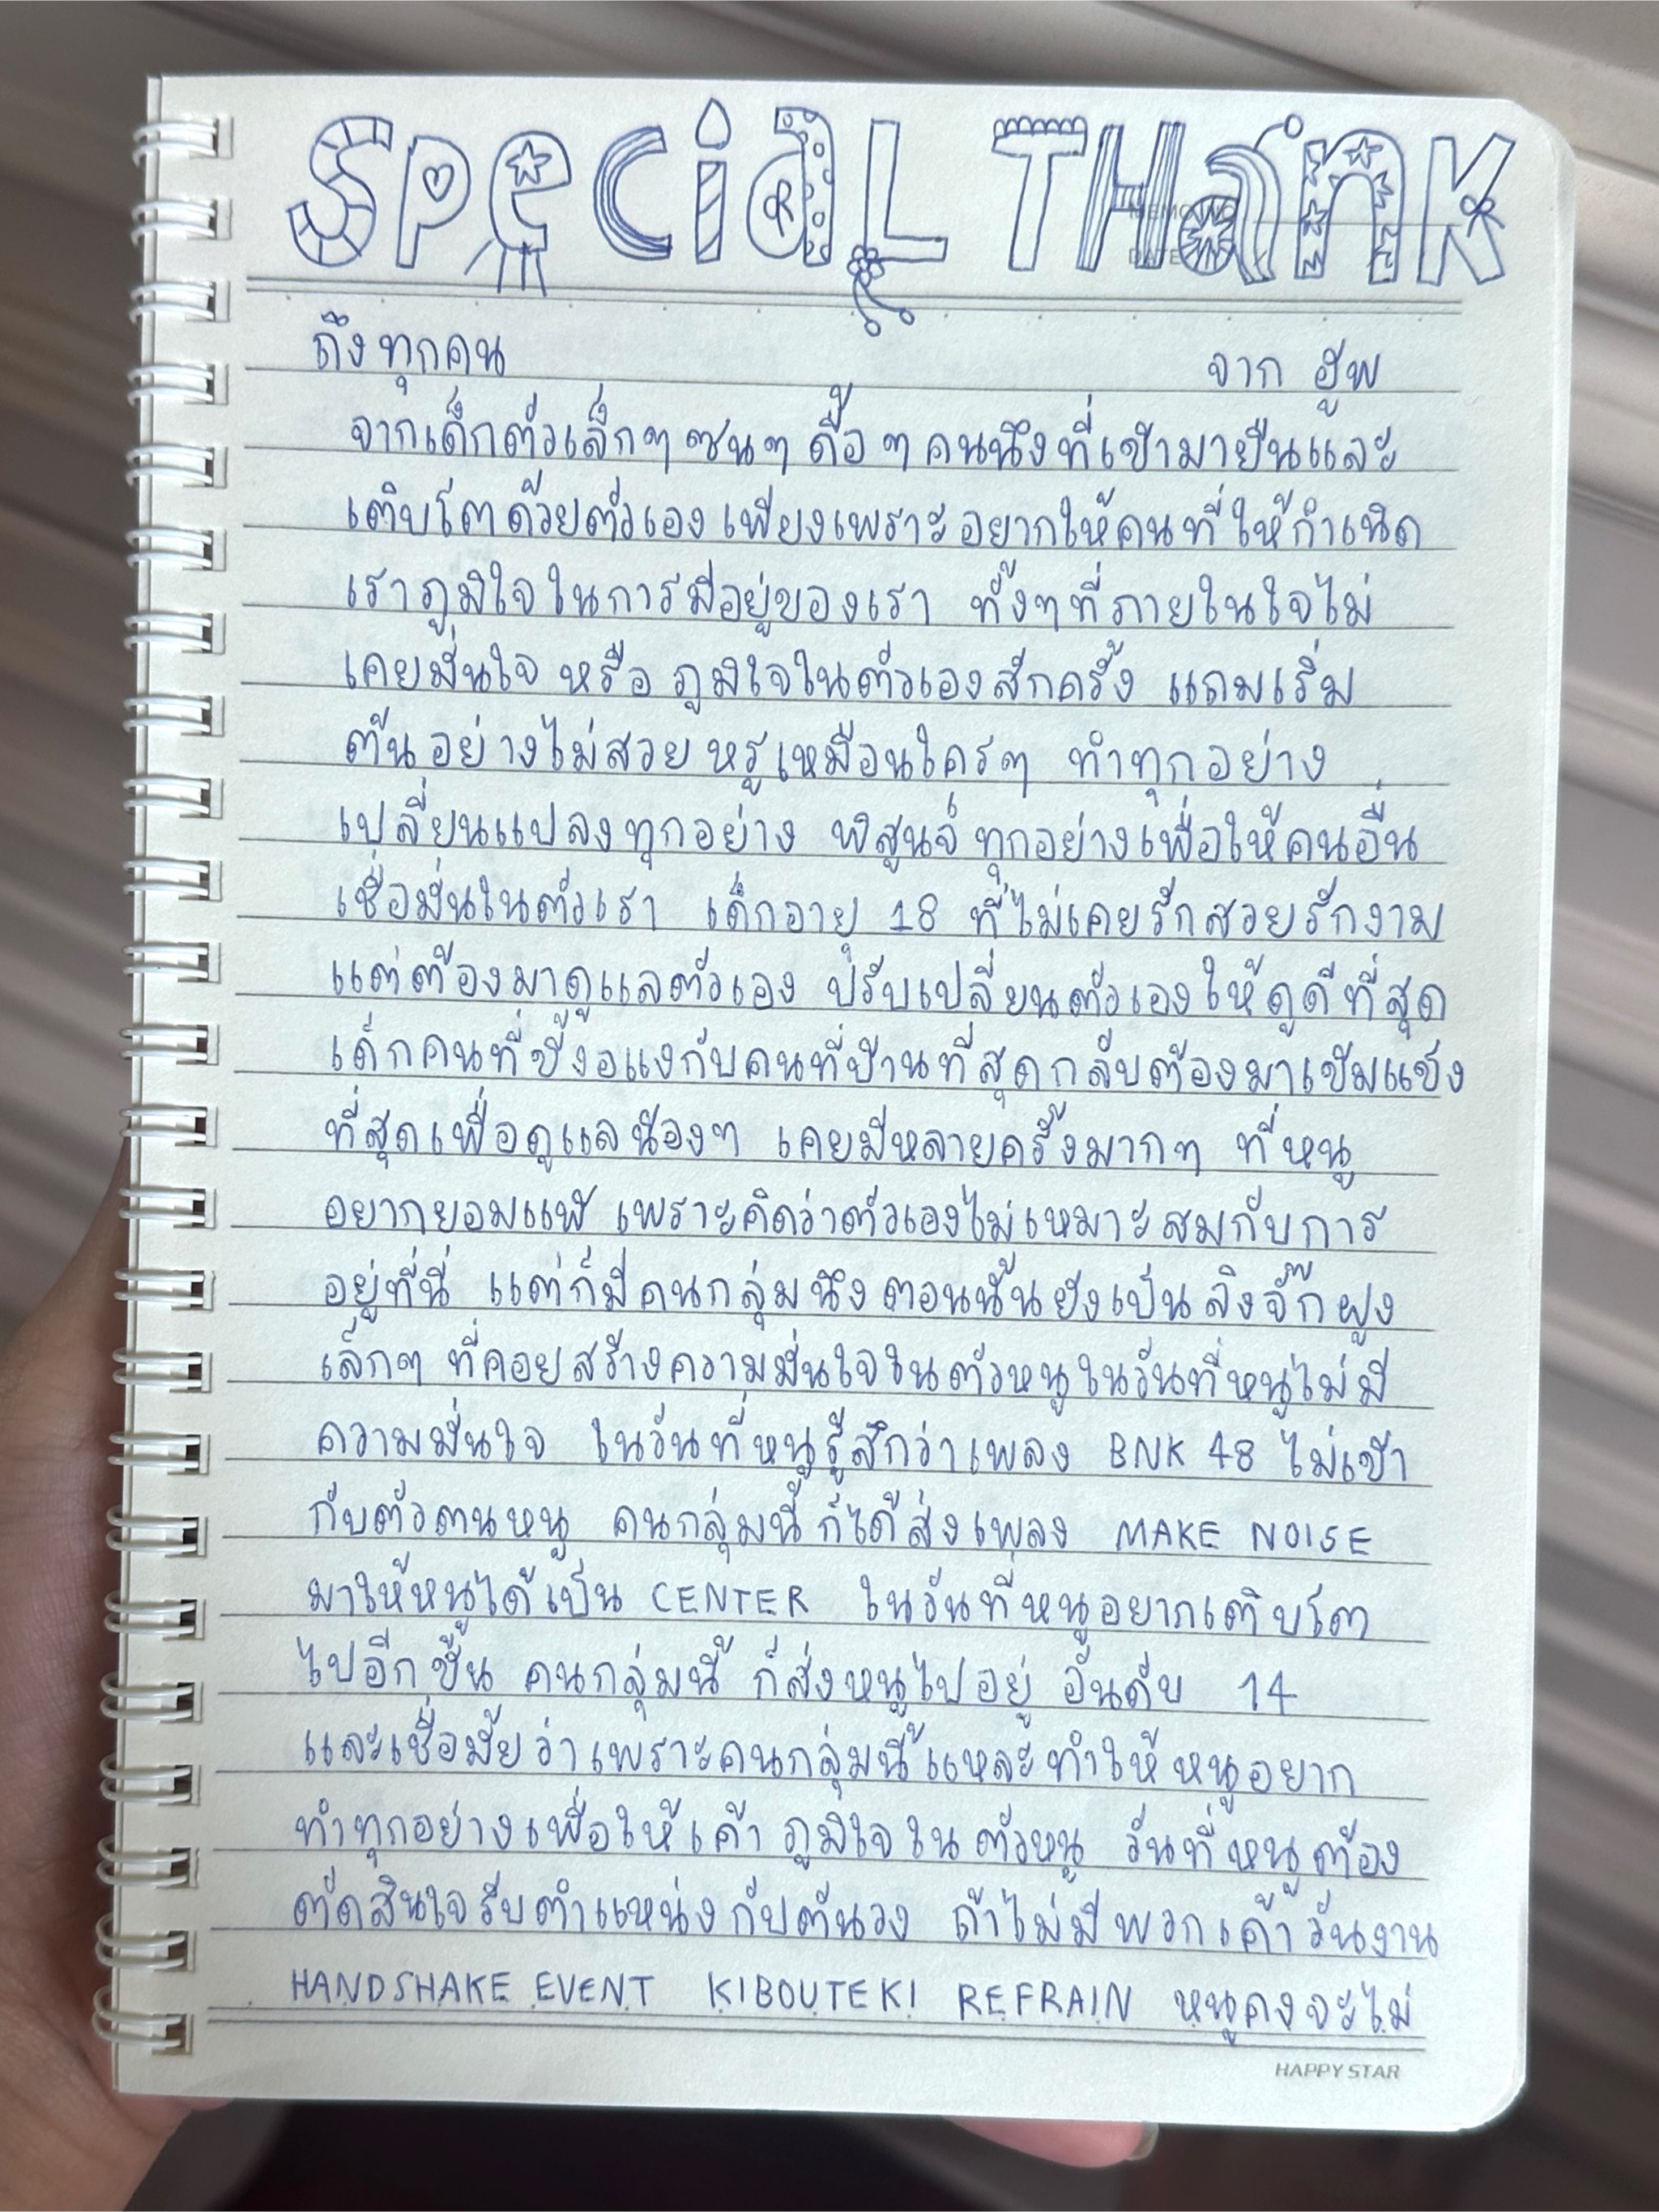 SPeciaL THank
MEMO NO.
DATE
ถึงทุกคน จาก ฮูพ
จากเด็กตัวเล็กๆซนๆดื้อๆคนนึงที่เข้ามายืนและ
เติบโตด้วยตัวเอง เพียงเพราะอยากให้คนที่ให้กำเนิด
เราภูมิใจในการมีอยู่ของเรา ทั้งๆที่ภายในใจไม่
เคยมั่นใจ หรือ ภูมิใจในตัวเองสักครั้ง แถมเริ่ม
ต้นอย่างไม่สวยหรูเหมือนใครๆ ทำทุกอย่าง
เปลี่ยนแปลงทุกอย่าง พิสูนจ์ทุกอย่างเพื่อให้คนอื่น
เชื่อมั่นในตัวเรา เด็กอายุ 18 ที่ไม่เคยรักสวยรักงาม
แต่ต้องมาดูแลตัวเอง ปรับเปลี่ยนตัวเองให้ดูดีที่สุด
เด็กคนที่ขี้งอแงกับคนที่บ้านที่สุดกลับต้องมาเข้มแข็ง
ที่สุดเพื่อดูแลน้องๆ เคยมีหลายครั้งมากๆ ที่หนู
อยากยอมแพ้ เพราะคิดว่าตัวเองไม่เหมาะสมกับการ
อยู่ที่นี่ แต่ก็มีคนกลุ่มนึงตอนนั้นยังเป็นลิงจั๊กฝูง
เล็กๆ ที่คอยสร้างความมั่นใจในตัวหนูในวันที่หนูไม่มี
ความมั่นใจ ในวันที่หนูรู้สึกว่าเพลง BNK 48 ไม่เข้า
กับตัวตนหนู คนกลุ่มนี้ก็ได้ส่งเพลง MAKE NOISE
มาให้หนูได้เป็น CENTER ในวันที่หนูอยากเติบโต
ไปอีกขั้น คนกลุ่มนี้ ก็ส่งหนูไปอยู่ อันดับ 14
และเชื่อมั้ยว่าเพราะคนกลุ่มนี้แหละทำให้หนูอยาก
ทำทุกอย่างเพื่อให้เค้าภูมิใจในตัวหนู วันที่หนูต้อง
ตัดสินใจรับตำแหน่งกัปตันวง ถ้าไม่มีพวกเค้าวันงาน
HANDSHAKE EVENT KIBOUTEKI REFRAIN หนูคงจะไม่
HAPPY STAR